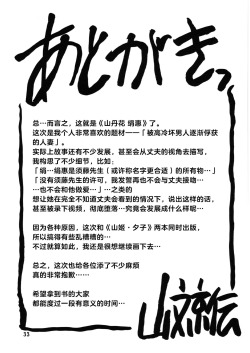 あとがきっ
总…而言之,这就是《山丹花 绢惠》了。
这次是我个人非常喜欢的题材——「被高冷坏男人逐渐俘获
的人妻」。
实际上故事还有不少发展,甚至会从丈夫的视角去描写,
我构思了不少细节,比如:
「绢…绢惠是须藤先生(或许称名字更合适)的所有物…」
「没有须藤先生的许可,我发誓再也不会与丈夫接吻…
…也不会和他做爱…」…之类的
想让她在完全不知道丈夫会看到的情况下,说出这样的话,
甚至被录下视频,彻底堕落…究竟会发展成什么样呢…
因为各种原因,这次和《山姬・夕子》两本同时出版,
所以搞得有些乱糟糟的…
不过就算如此,我还是很想继续画下去…
总之,这次也给各位添了不少麻烦
真的非常抱歉……
希望拿到书的大家
都能度过一段有意义的时间…
山文京伝
33